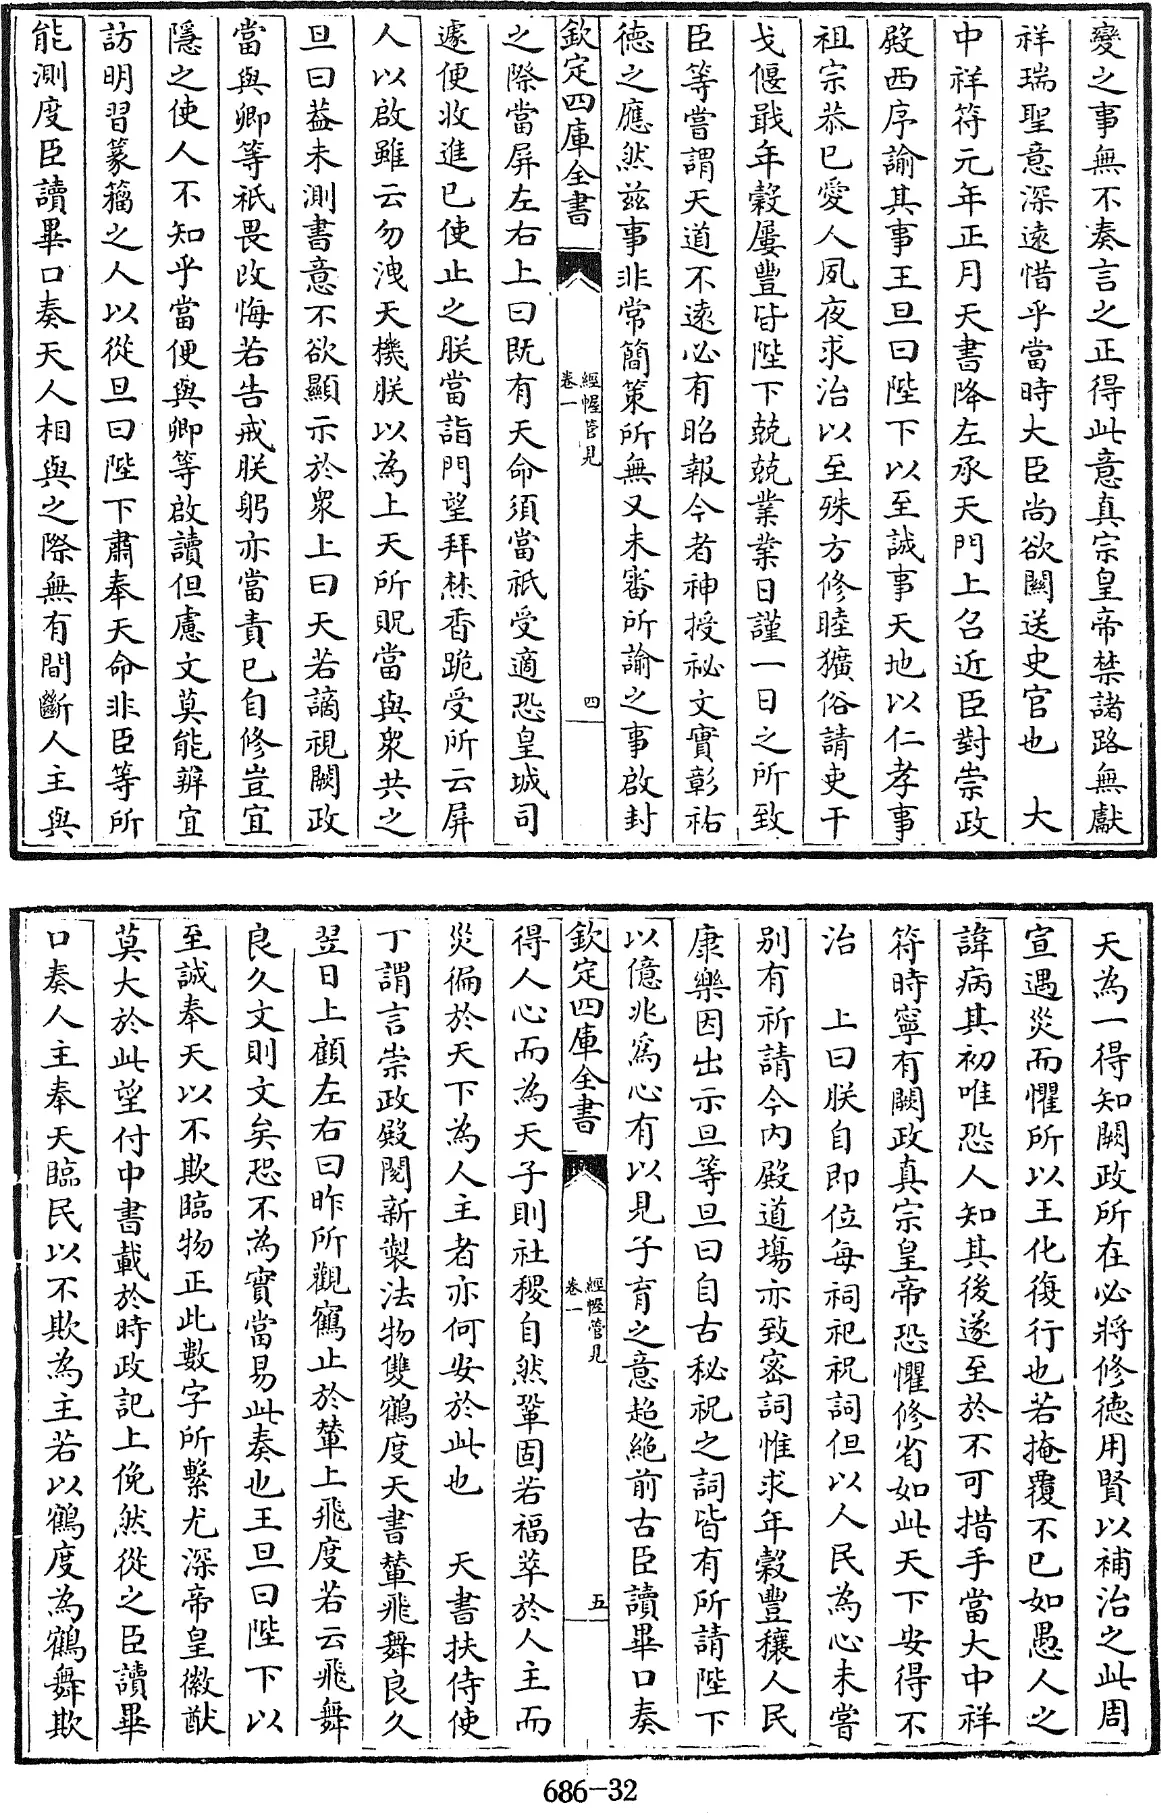 變之事無不奏言之正得此意真宗皇帝禁諸路無獻
祥瑞聖意深遠惜乎當時大臣尚欲關送史官也　大
中祥符元年正月天書降左承天門上召近臣對崇政
殿西序諭其事王旦曰陛下以至誠事天地以仁孝事
祖宗恭己愛人夙夜求治以至殊方修睦獷俗請吏干
戈偃戢年穀屢豐皆陛下兢兢業業日謹一日之所致
臣等嘗謂天道不遠必有昭報今者神授祕文實彰祐
德之應然茲事非常簡策所無又未審所諭之事啟封
欽定四庫全書
經幄管見
卷一
四
之際當屏左右上曰既有天命須當祇受適恐皇城司
遽便收進已使止之朕當詣門望拜焚香跪受所云屏
人以啟雖云勿洩天機朕以為上天所貺當與衆共之
旦曰葢未測書意不欲顯示於衆上曰天若謫視闕政
當與卿等祇畏改悔若告戒朕躬亦當責已自修豈宜
隱之使人不知乎當便與卿等啟讀但慮文莫能辨宜
訪明習篆籀之人以從旦曰陛下肅奉天命非臣等所
能測度臣讀畢口奏天人相與之際無有間斷人主與
天為一得知闕政所在必將修德用賢以補治之此周
宣遇災而懼所以王化復行也若掩覆不已如愚人之
諱病其初唯恐人知其後遂至於不可措手當大中祥
符時寧有闕政真宗皇帝恐懼修省如此天下安得不
治　上曰朕自即位每祠祀祝詞但以人民為心未嘗
別有祈請今內殿道場亦致密詞惟求年穀豐穰人民
康樂因出示旦等旦曰自古秘祝之詞皆有所請陛下
以億兆為心有以見子育之意超絶前古臣讀畢口奏
欽定四庫全書
經幄管見
卷一
五
得人心而為天子則社稷自然鞏固若福萃於人主而
災徧於天下為人主者亦何安於此也　天書扶侍使
丁謂言崇政殿閱新製法物雙鶴度天書輦飛舞良久
翌日上顧左右曰昨所觀鶴止於輦上飛度若云飛舞
良久文則文矣恐不為實當易此奏也王旦曰陛下以
至誠奉天以不欺臨物正此數字所繫尤深帝皇徽猷
莫大於此望付中書載於時政記上俛然從之臣讀畢
口奏人主奉天臨民以不欺為主若以鶴度為鶴舞欺
686-32